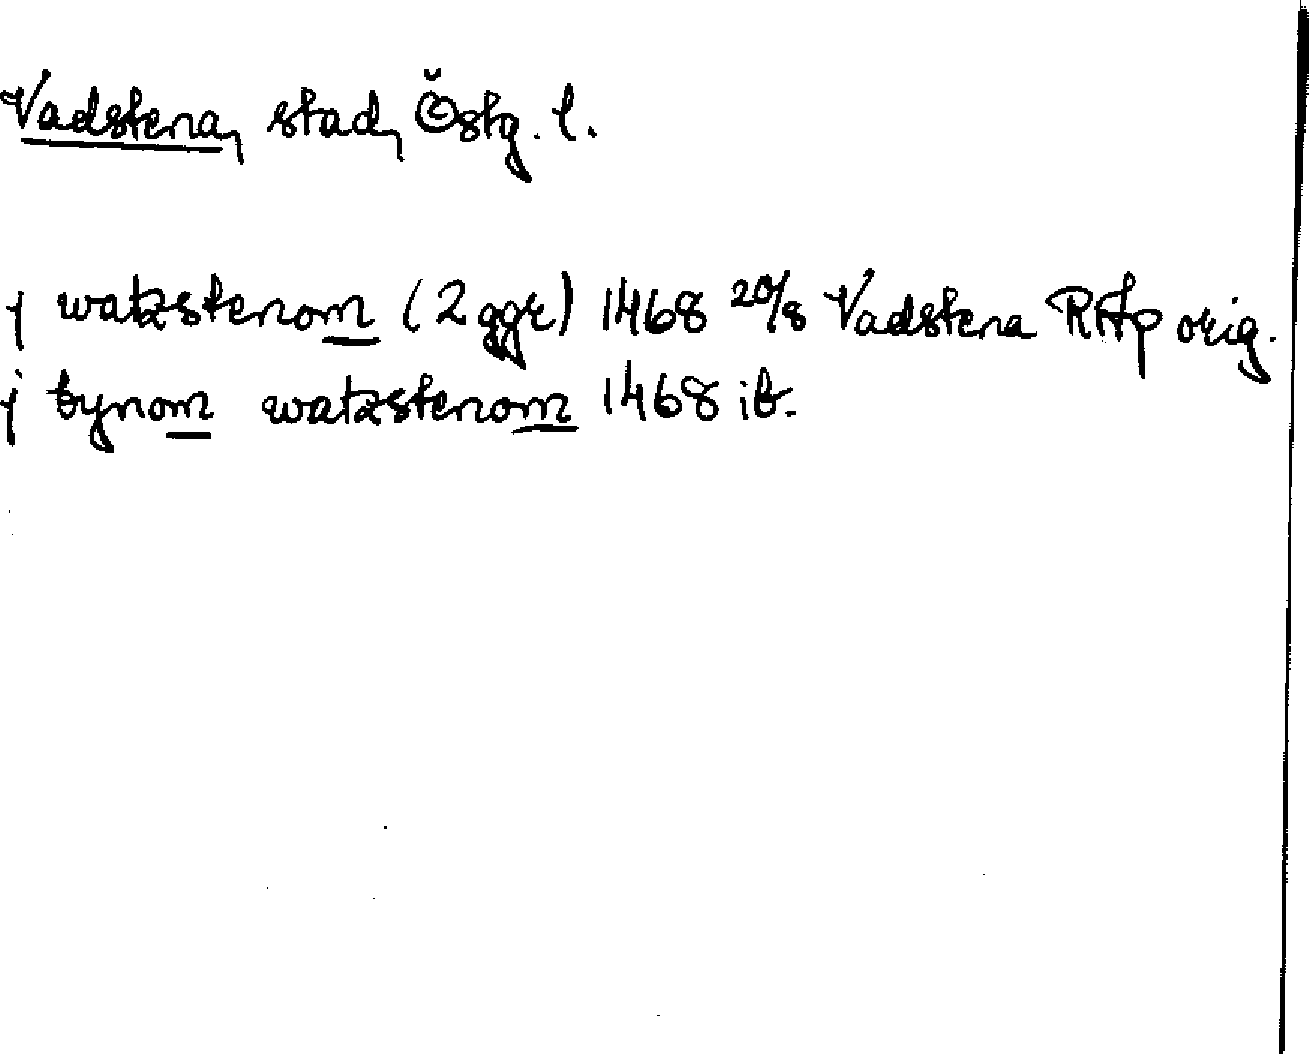 Vadstena, stad, Östg. l.
j watzstenom (2 ggr) 1468 20/8 Vadstena RAp orig.
j bynom watzstenom 1468 ib.